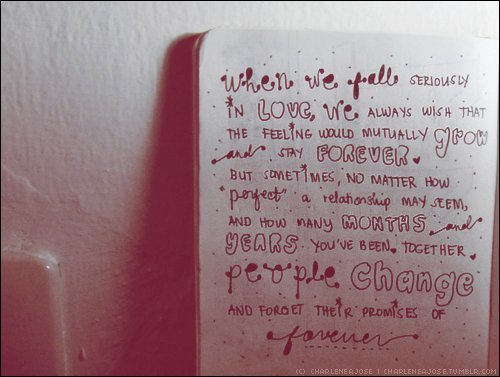 when we fall SERIOUSLY
IN LOVE, WE ALWAYS WISH THAT
THE FEELING WOULD MUTUALLY grow
and STAY FOREVER.
BUT SOMETIMES, NO MATTER HOW
"perfect" a relationship MAY SEEM,
AND HOW MANY MONTHS and
YEARS YOU'VE BEEN TOGETHER
people change
AND FORGET THEIR PROMISES OF
forever
(C) CHARLENEAJOSE | CHARLENEAJOSE.TUMBLR.COM